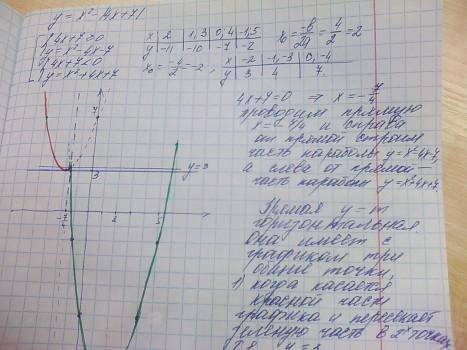 y = x² - |4x+7|
{4x+7≥0
y = x²-4x-7
{4x+7<0
y = x²+4x+7
x | 2 | 1, 3 | 0, 4 | -1, 5
y | -11 | -10 | -7 | -2
x₀ = -b/2a = 4/2 = 2
x₀ = -4/2 = -2,
x | -2 | -1, -3 | 0, -4
y | 3 | 4 | 7
4x+7=0 ⇒ x = -7/4
проводим прямую
x = -7/4 и справа
от прямой строим
часть параболы y=x²-4x-7,
а слева от прямой
часть параболы y=x²+4x+7.
7
y=3
3
-7/4
2
5
Прямая y=m
горизонтальная.
Она имеет с
графиком три
общие точки,
1) когда касается
красной части
графика и пересекает
зелёную часть в 2х точках
y=3